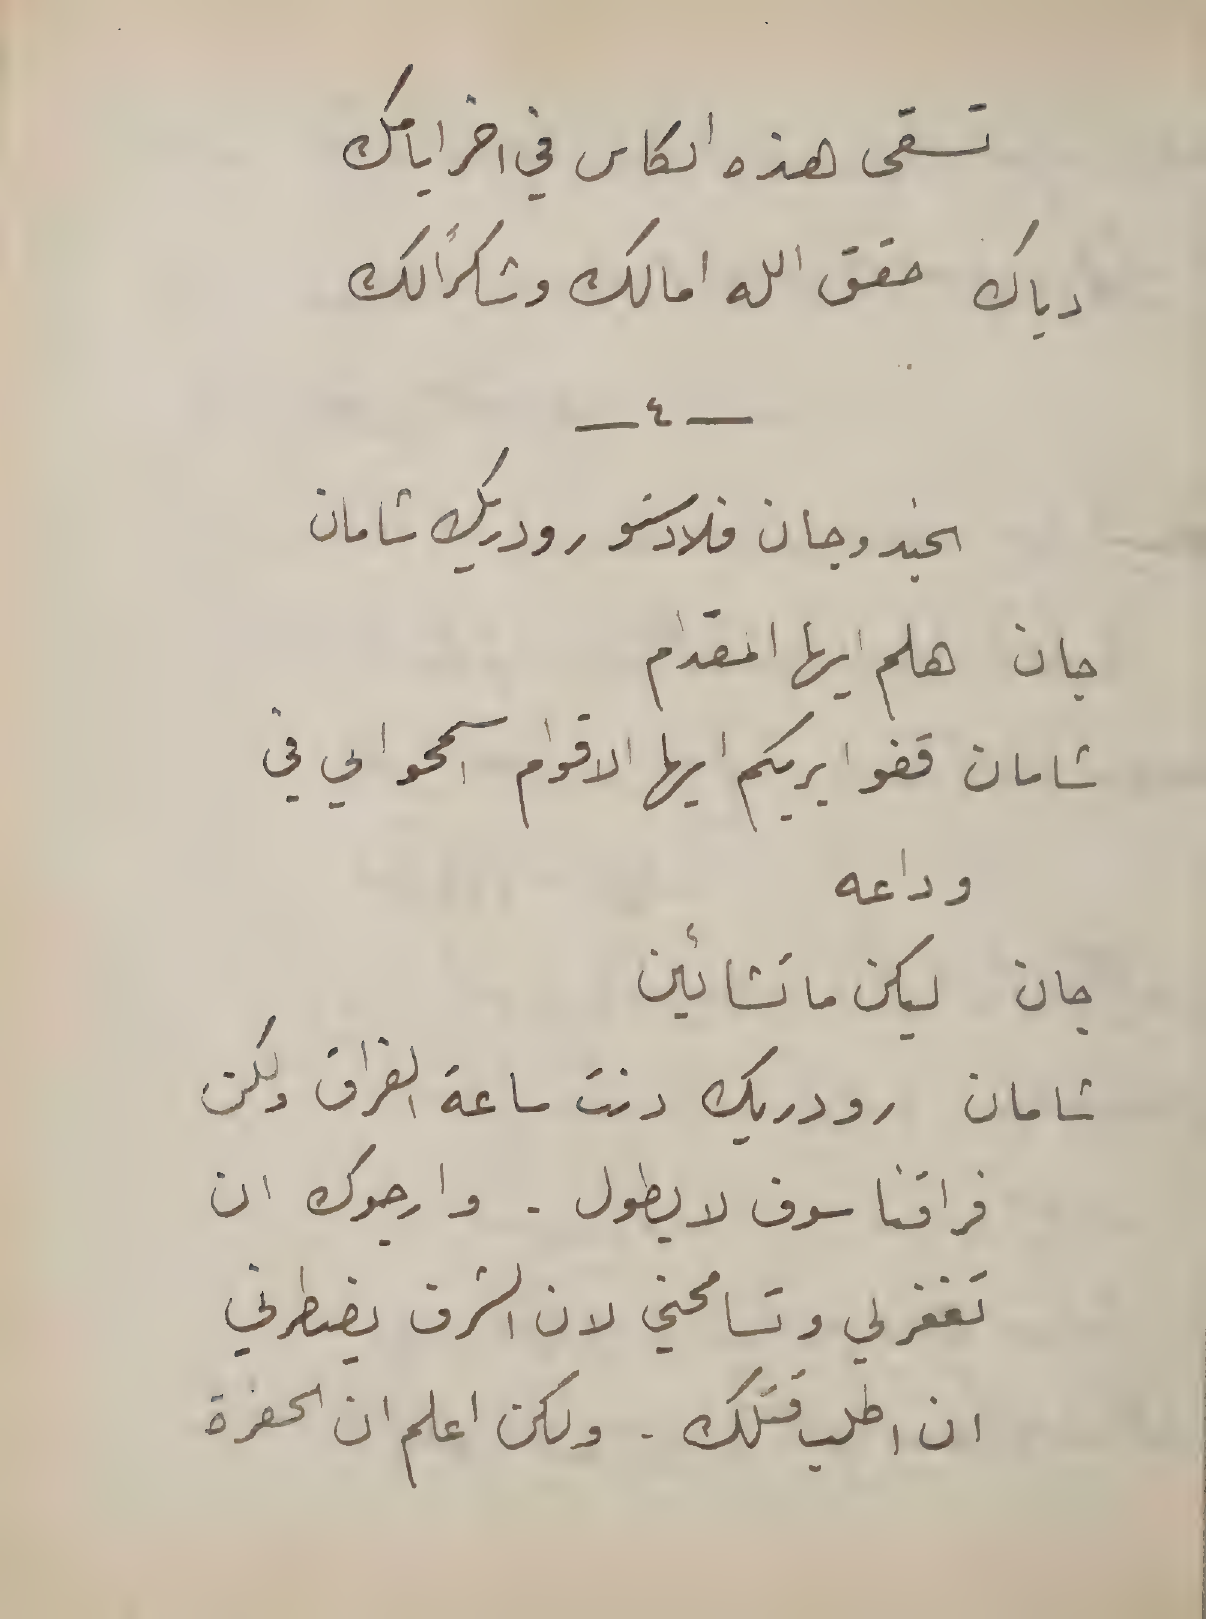 تسقى هذه الكاس في اخر ايامك
دياك حقق الله امالك وشكرًا لك
— ٤ —
الجند وجان فلادستو رودريك شامان
جان هلم ايها المقدام
شامان قفوا بربكم ايها الاقوام اسمحوا لي في
وداعه
جان ليكن ما تشائين
شامان رودريك دنت ساعة الفراق ولكن
فراقنا سوف لا يطول . وارجوك ان
تغفر لي وتسامحني لان الشرف يضطرني
ان اطلب قتلك . ولكن اعلم ان الحفرة